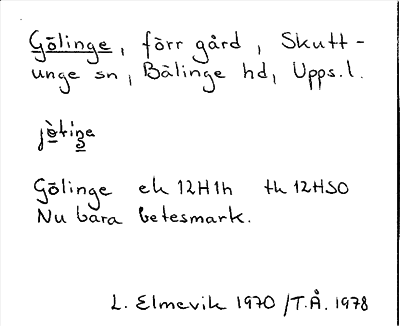 Gölinge, förr gård, Skutt-
unge sn, Bälinge hd, Upps.l.
Gölinge ek 12H1h tk 12HSO
Nu bara betesmark.
L. Elmevik 1970 /T.Å. 1978